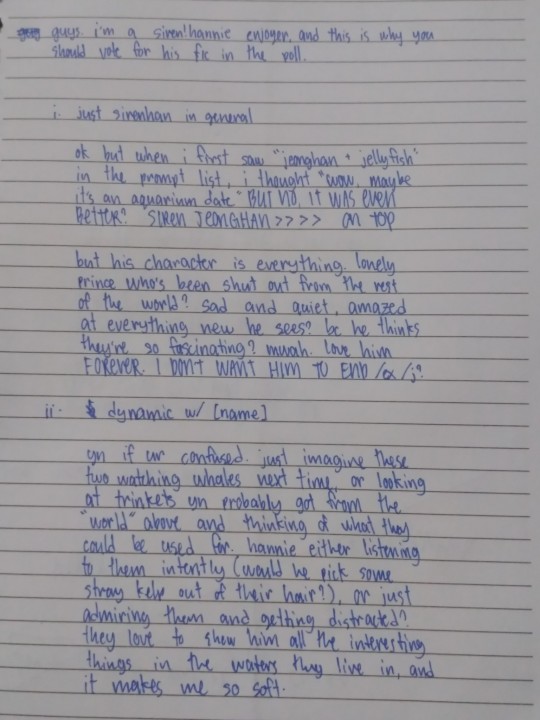 guys. i'm a siren!hannie enjoyer, and this is why you
should vote for his fic in the poll.
i. just sirenhan in general
ok but when i first saw "jeonghan + jellyfish"
in the prompt list, i thought "wow, maybe
it's an aquarium date" BUT NO, IT WAS EVEN
BETTER? SIREN JEONGHAN >>>> ON TOP
but his character is everything. lonely
prince who's been shut out from the rest
of the world? sad and quiet, amazed
at everything new he sees? bc he thinks
they're so fascinating? mwah. love him
FOREVER. I DON'T WANT HIM TO END /j?
ii. dynamic w/ [name]
yn if ur confused. just imagine these
two watching whales next time, or looking
at trinkets yn probably got from the
"world" above and thinking of what they
could be used for. hannie either listening
to them intently (would he pick some
stray kelp out of their hair?), or just
admiring them and getting distracted?
they love to show him all the interesting
things in the waters they live in, and
it makes me so soft.